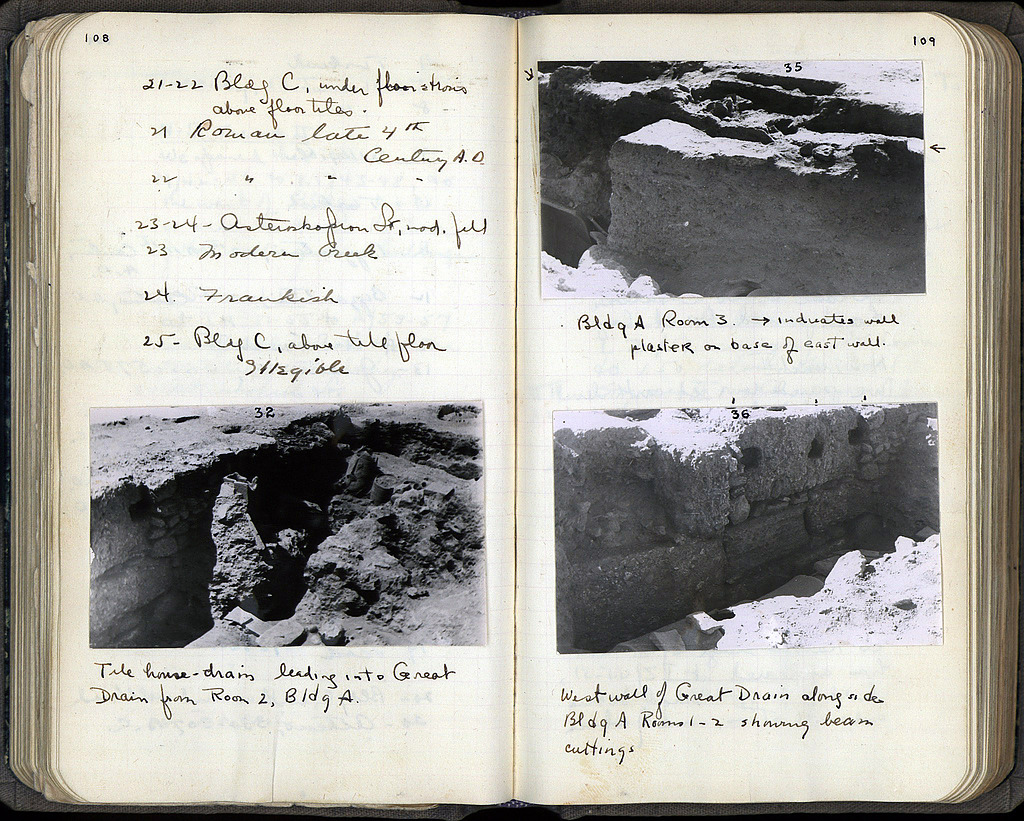 108
21-22 Bldg C, under floor strosis
above floor tiles.
21 Roman late 4th
Century A.D
22 " " "
23-24 - Asteroskopion St, mod. fill
23 Modern Greek
24. Frankish
25- Bldg C, above tile floor
Illegible
32
Tile house-drain leading into Great
Drain from Room 2, Bldg A.
109
35
←
Bldg A Room 3. → indicates wall
plaster on base of east wall.
36
West wall of Great Drain alongside
Bldg A Rooms 1-2 showing beam
cuttings